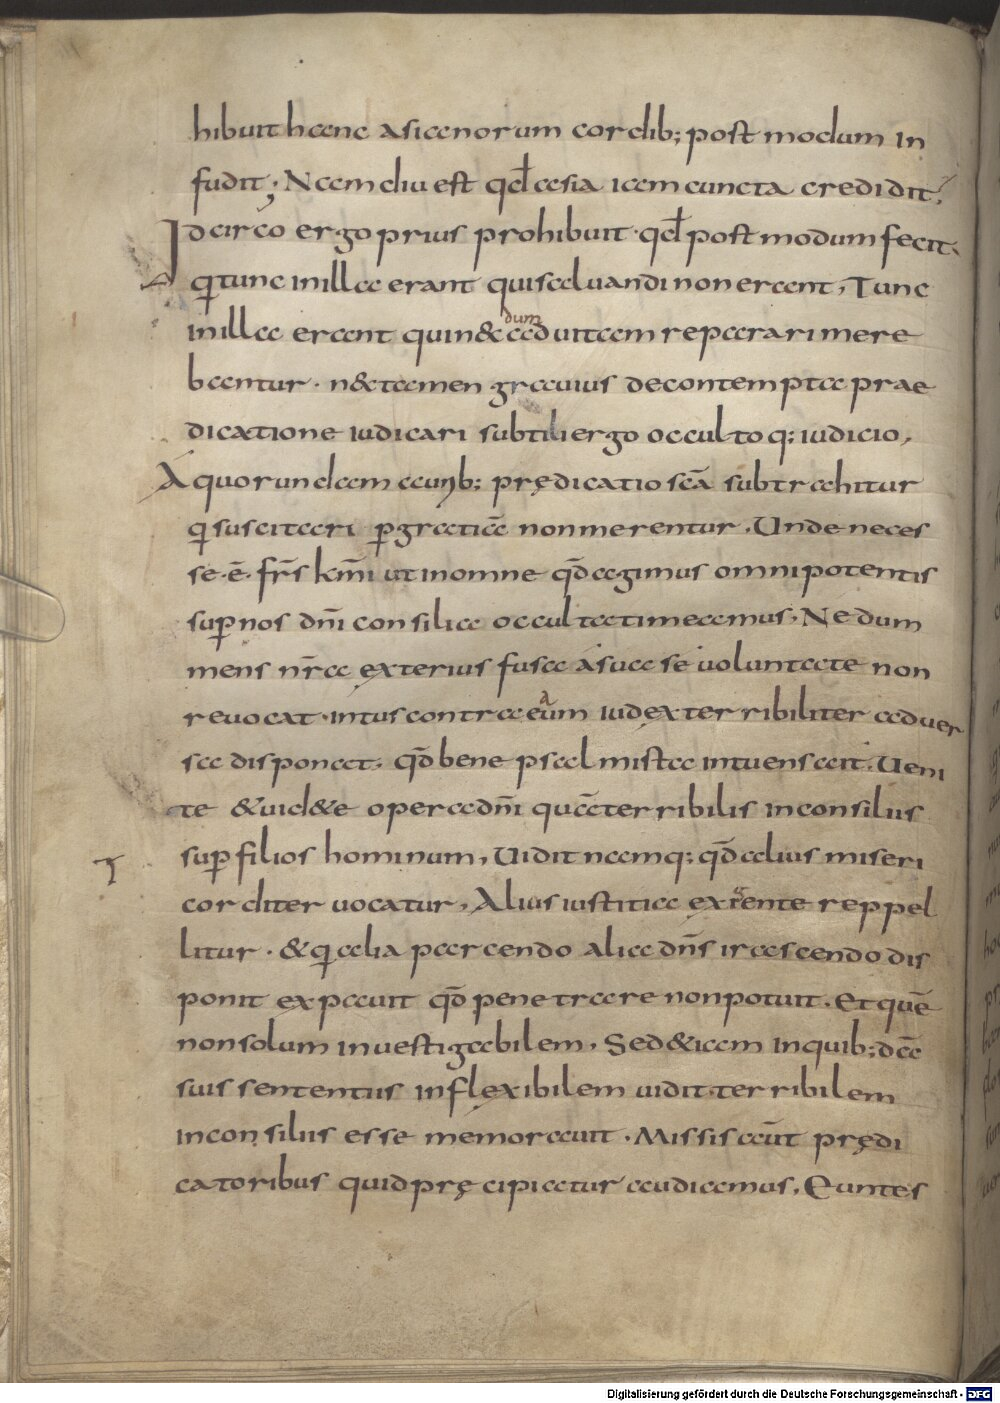 hibuit hanc asianorum cordib; postmodum in
fudit; Nam diu est qd asia iam cuncta credidit,
Idcirco ergo prius prohibuit qđ postmodum fecit.
q tunc in illa erant qui saluandi non erant, Tunc
in illa erant qui n& dum ad uitam reparari mere
bantur. n& tamen grauius de contempta prae
dicatione iudicari subtili ergo occultoq; iudicio,
A quorundam aurib; prędicatio scā subtrahitur
q suscitari p gratiā non merentur. Unde neces
se. ē. fr̄s km̄i ut in omne qd agimus omnipotentis
sup nos dn̄i consilia occulta timeamus. Ne dum
mens nr̄a exterius fusa a sua se uoluntate non
reuocat. intus contra eam iudex terribiliter aduer
sa disponat. qd bene psalmista intuens ait. Ueni
te & uid&e opera dn̄i quā terribilis in consiliis
sup filios hominum, Uidit namq; qd alius miseri
corditer uocatur, Alius iustitia exigente reppel
litur. & q alia parcendo alia dn̄s irascendo dis
ponit expauit qd penetrare non potuit. Et quē
non solum inuestigabilem, Sed & iam in quib; dā
suis sententiis inflexibilem uidit. terribilem
in consiliis esse memorauit. Missis aut̄ prędi
catoribus quid pręcipiatur audiamus, Euntes
Digitalisierung gefördert durch die Deutsche Forschungsgemeinschaft - DFG